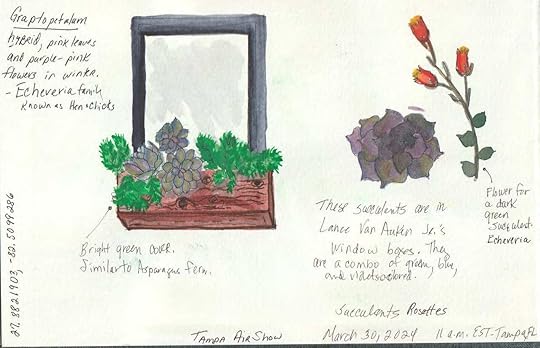 Graptopetalum
hybrid, pink leaves
and purple-pink
flowers in winter.
- Echeveria family
Known as Hen & Chicks
27.8821903, -82.5099286
Bright green cover.
Similar to Asparagus fern.
These succulents are in
Lance Van Auken Jr.'s
Window boxes. They
are a combo of green, blue,
and violet colored.
Flower for
a dark
green
Succulent
Echeveria
Succulents Rosettes
Tampa AirShow
March 30, 2024 11 a.m. EST-Tampa, FL